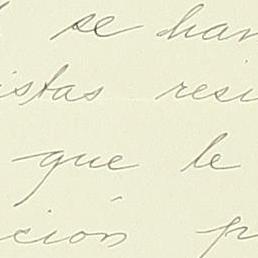 se han
istas resi
que le
ción p